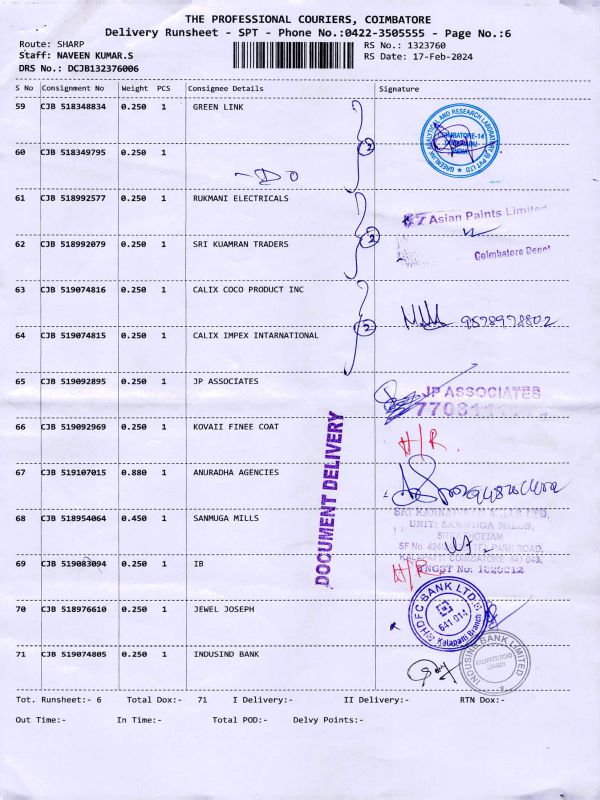 THE PROFESSIONAL COURIERS, COIMBATORE
Delivery Runsheet - SPT - Phone No.:0422-3505555 - Page No.:6
Route: SHARP RS No.: 1323760
Staff: NAVEEN KUMAR.S RS Date: 17-Feb-2024
DRS No.: DCJB132376006
S No Consignment No Weight PCS Consignee Details Signature
59 CJB 518348834 0.250 1 GREEN LINK
GREENLINK ANALYTICAL AND RESEARCH LABORATORY (I) PVT LTD
COIMBATORE-14
INDIA
2
60 CJB 518349795 0.250 1
DO
61 CJB 518992577 0.250 1 RUKMANI ELECTRICALS
Asian Paints Limited
2
62 CJB 518992079 0.250 1 SRI KUAMRAN TRADERS
Coimbatore Depot
63 CJB 519074816 0.250 1 CALIX COCO PRODUCT INC
9578978802
2
64 CJB 519074815 0.250 1 CALIX IMPEX INTARNATIONAL
65 CJB 519092895 0.250 1 JP ASSOCIATES
JP ASSOCIATES
66 CJB 519092969 0.250 1 KOVAII FINEE COAT
H/R.
DOCUMENT DELIVERY
67 CJB 519107015 0.880 1 ANURADHA AGENCIES
68 CJB 518954064 0.450 1 SANMUGA MILLS
SRI KANNAPIRAN MILLS LTD,
UNIT: SANMUGA MILLS,
PARK ROAD,
COIMBATORE 641 048.
69 CJB 519083094 0.250 1 IB
H/R.
TNGST No:
70 CJB 518976610 0.250 1 JEWEL JOSEPH
HDFC BANK LTD
641 014
Kalapatti Branch
71 CJB 519074805 0.250 1 INDUSIND BANK
INDUSIND BANK LIMITED
KALAPATTI ROAD
BRANCH
Tot. Runsheet:- 6 Total Dox:- 71 I Delivery:- II Delivery:- RTN Dox:-
Out Time:- In Time:- Total POD:- Delvy Points:-